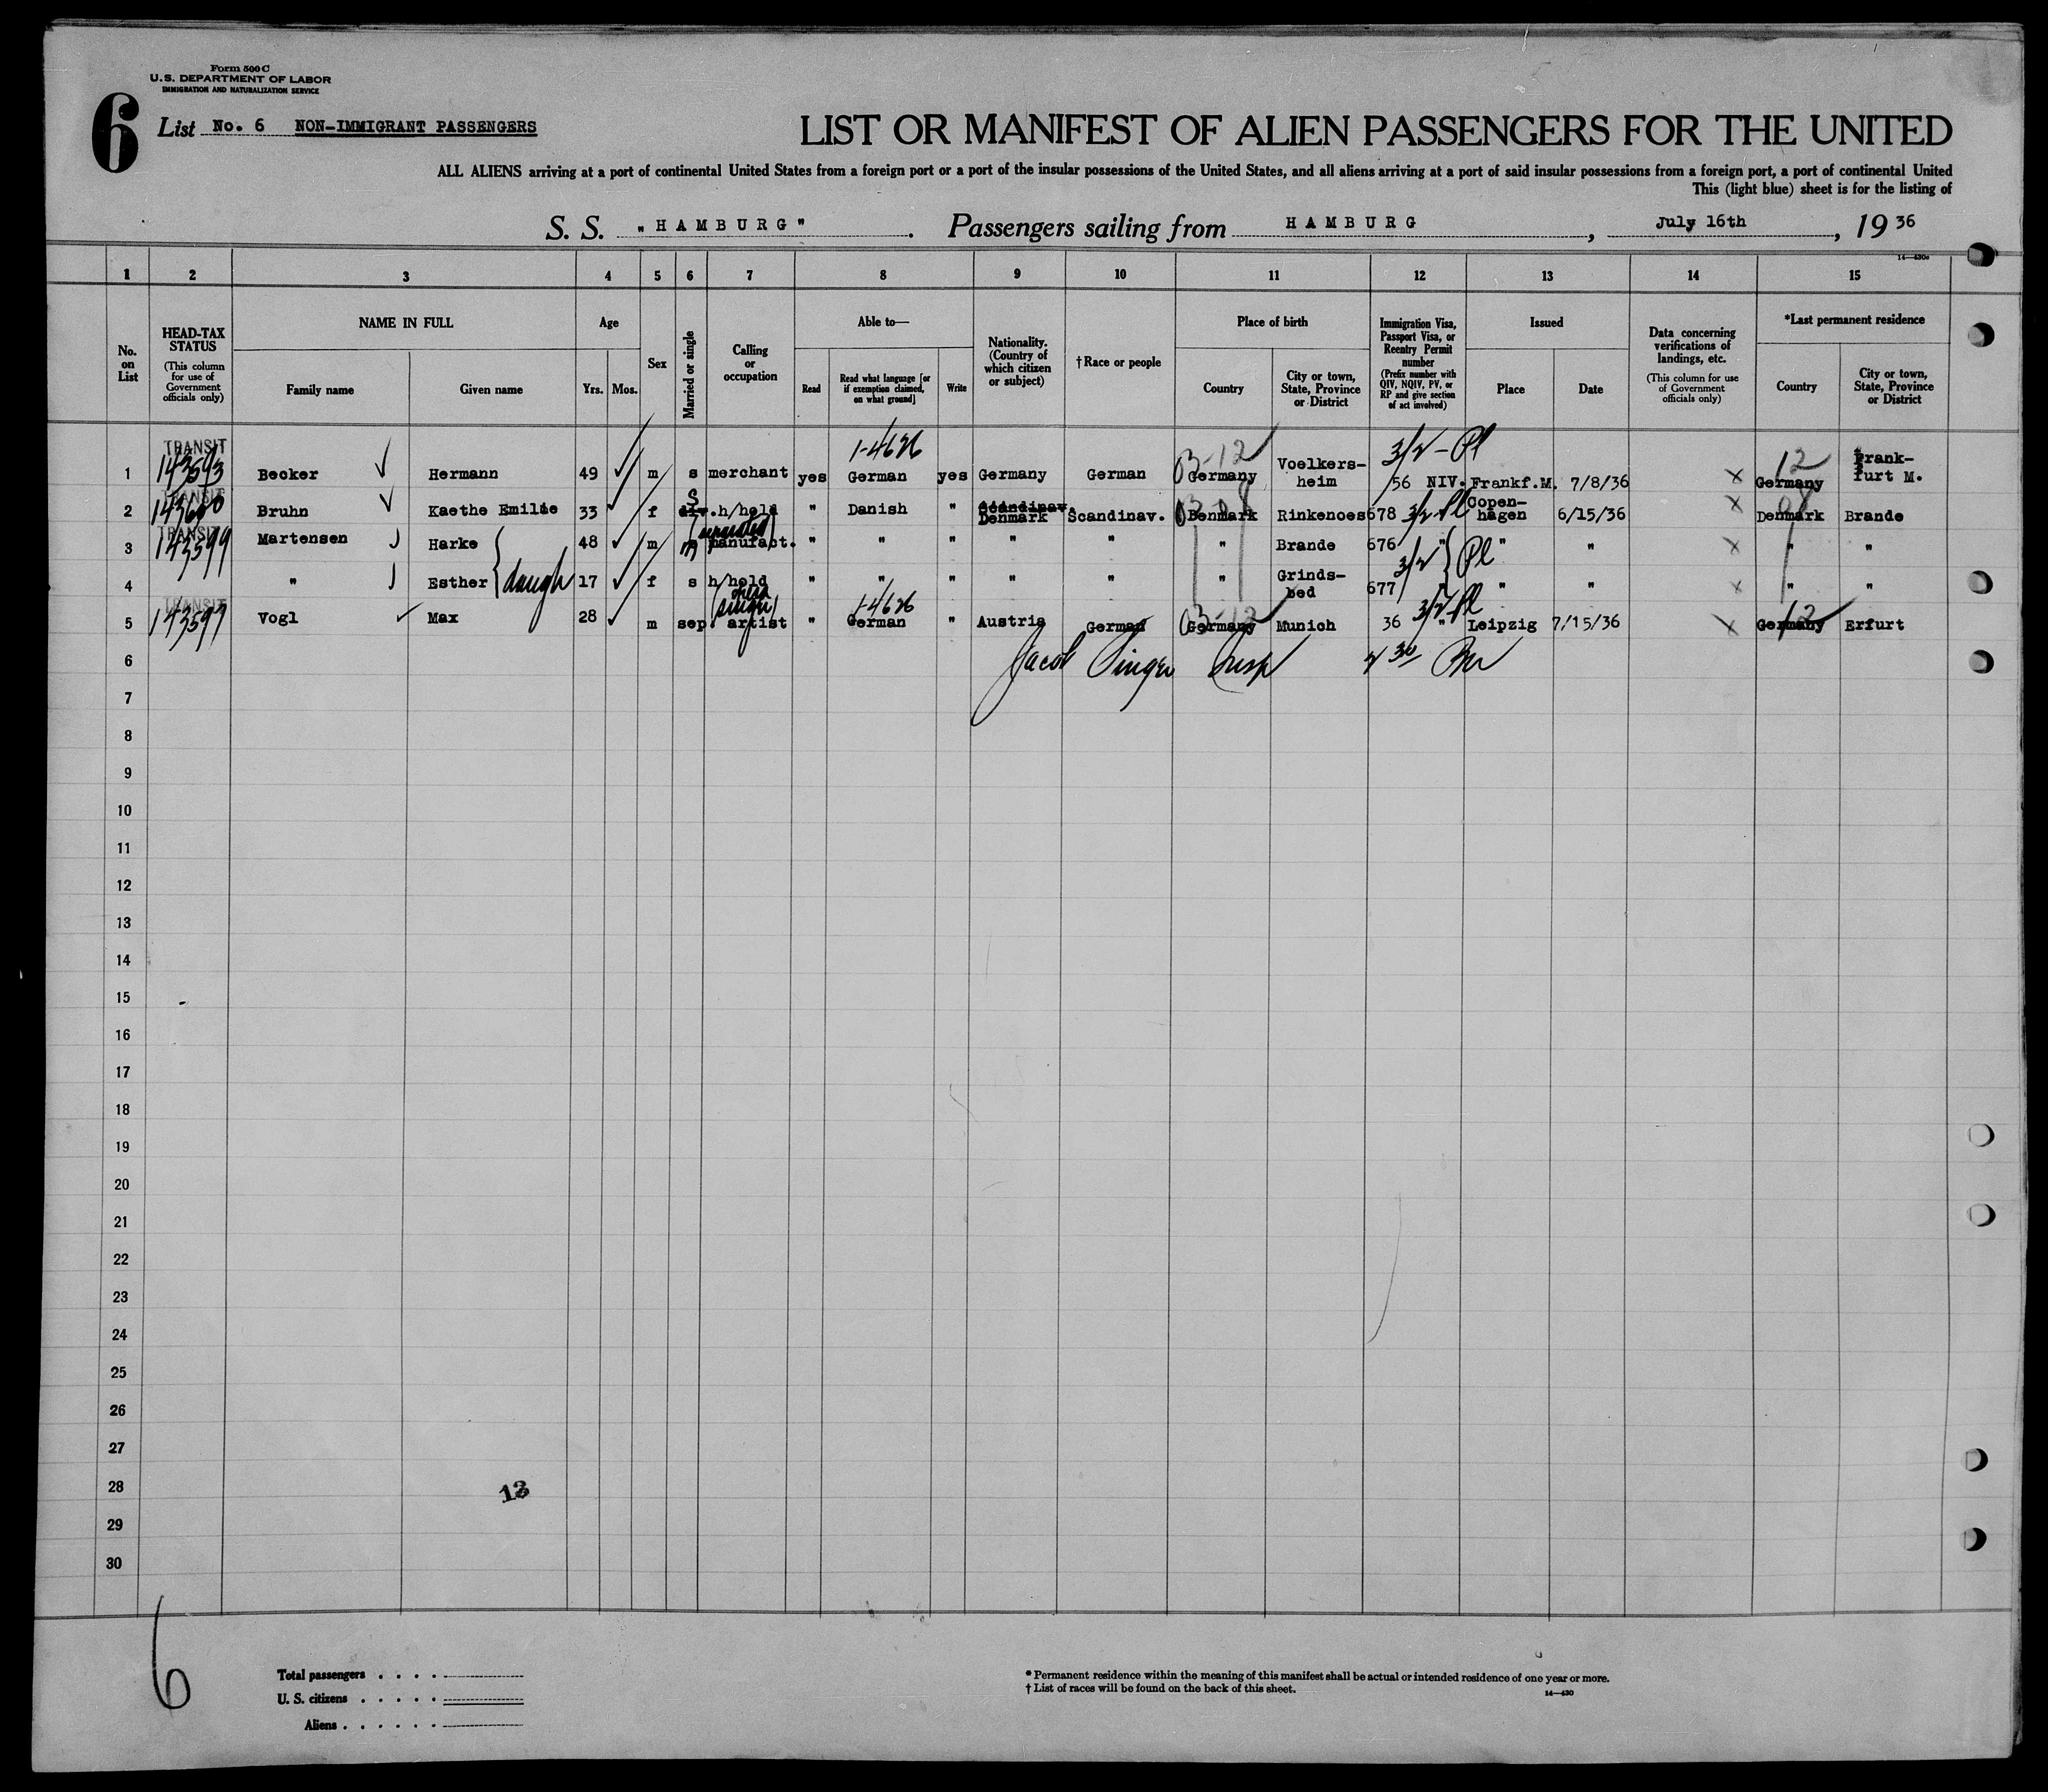 Form 500 C
U.S. DEPARTMENT OF LABOR
IMMIGRATION AND NATURALIZATION SERVICE
6
List No. 6 NON-IMMIGRANT PASSENGERS
LIST OR MANIFEST OF ALIEN PASSENGERS FOR THE UNITED
ALL ALIENS arriving at a port of continental United States from a foreign port or a port of the insular possessions of the United States, and all aliens arriving at a port of said insular possessions from a foreign port, a port of continental United
This (light blue) sheet is for the listing of
S. S. "HAMBURG". Passengers sailing from HAMBURG, July 16th, 19 36
14—430c
1 2 3 4 5 6 7 8 9 10 11 12 13 14 15
No. on List
HEAD-TAX STATUS
(This column for use of Government officials only)
NAME IN FULL
Family name Given name
Age
Yrs. Mos.
Sex
Married or single
Calling or occupation
Able to—
Read Read what language [or if exemption claimed, on what ground] Write
Nationality. (Country of which citizen or subject)
† Race or people
Place of birth
Country City or town, State, Province or District
Immigration Visa, Passport Visa, or Reentry Permit number
(Prefix number with QIV, NQIV, PV, or RP and give section of act involved)
Issued
Place Date
Data concerning verifications of landings, etc.
(This column for use of Government officials only)
*Last permanent residence
Country City or town, State, Province or District
TRANSIT 1-4626 03-12 3/2-Pl 12
1 143593 Becker Hermann 49 m s merchant yes German yes Germany German Germany Voelkers-heim 56 NIV. Frankf.M. 7/8/36 x Germany Frank-furt M.
TRANSIT S Scandinav. 03-08 3/2 Pl 08
2 143600 Bruhn Kaethe Emilie 33 f div. h/hold " Danish " Denmark Scandinav. Denmark Rinkenoes 678 Copen-hagen 6/15/36 x Denmark Brande
TRANSIT separated
3 143599 Martensen Harke 48 m m manufact. " " " " " " Brande 676 " " " x " "
4 " Esther daugh 17 f s h/hold " " " " " " Grinds-bed 677 3/2 Pl " " " x " "
TRANSIT (opera singer) 1-4626 03-12 3/2 Pl 12
5 143597 Vogl Max 28 m sep. artist " German " Austria German Germany Munich 36 " Leipzig 7/15/36 x Germany Erfurt
6 Jacob Singer Insp
7
8
9
10
11
12
13
14
15
16
17
18
19
20
21
22
23
24
25
26
27
28
29
30
13
6
Total passengers . . . .
U. S. citizens . . . . .
Aliens . . . . . .
* Permanent residence within the meaning of this manifest shall be actual or intended residence of one year or more.
† List of races will be found on the back of this sheet.
14—430